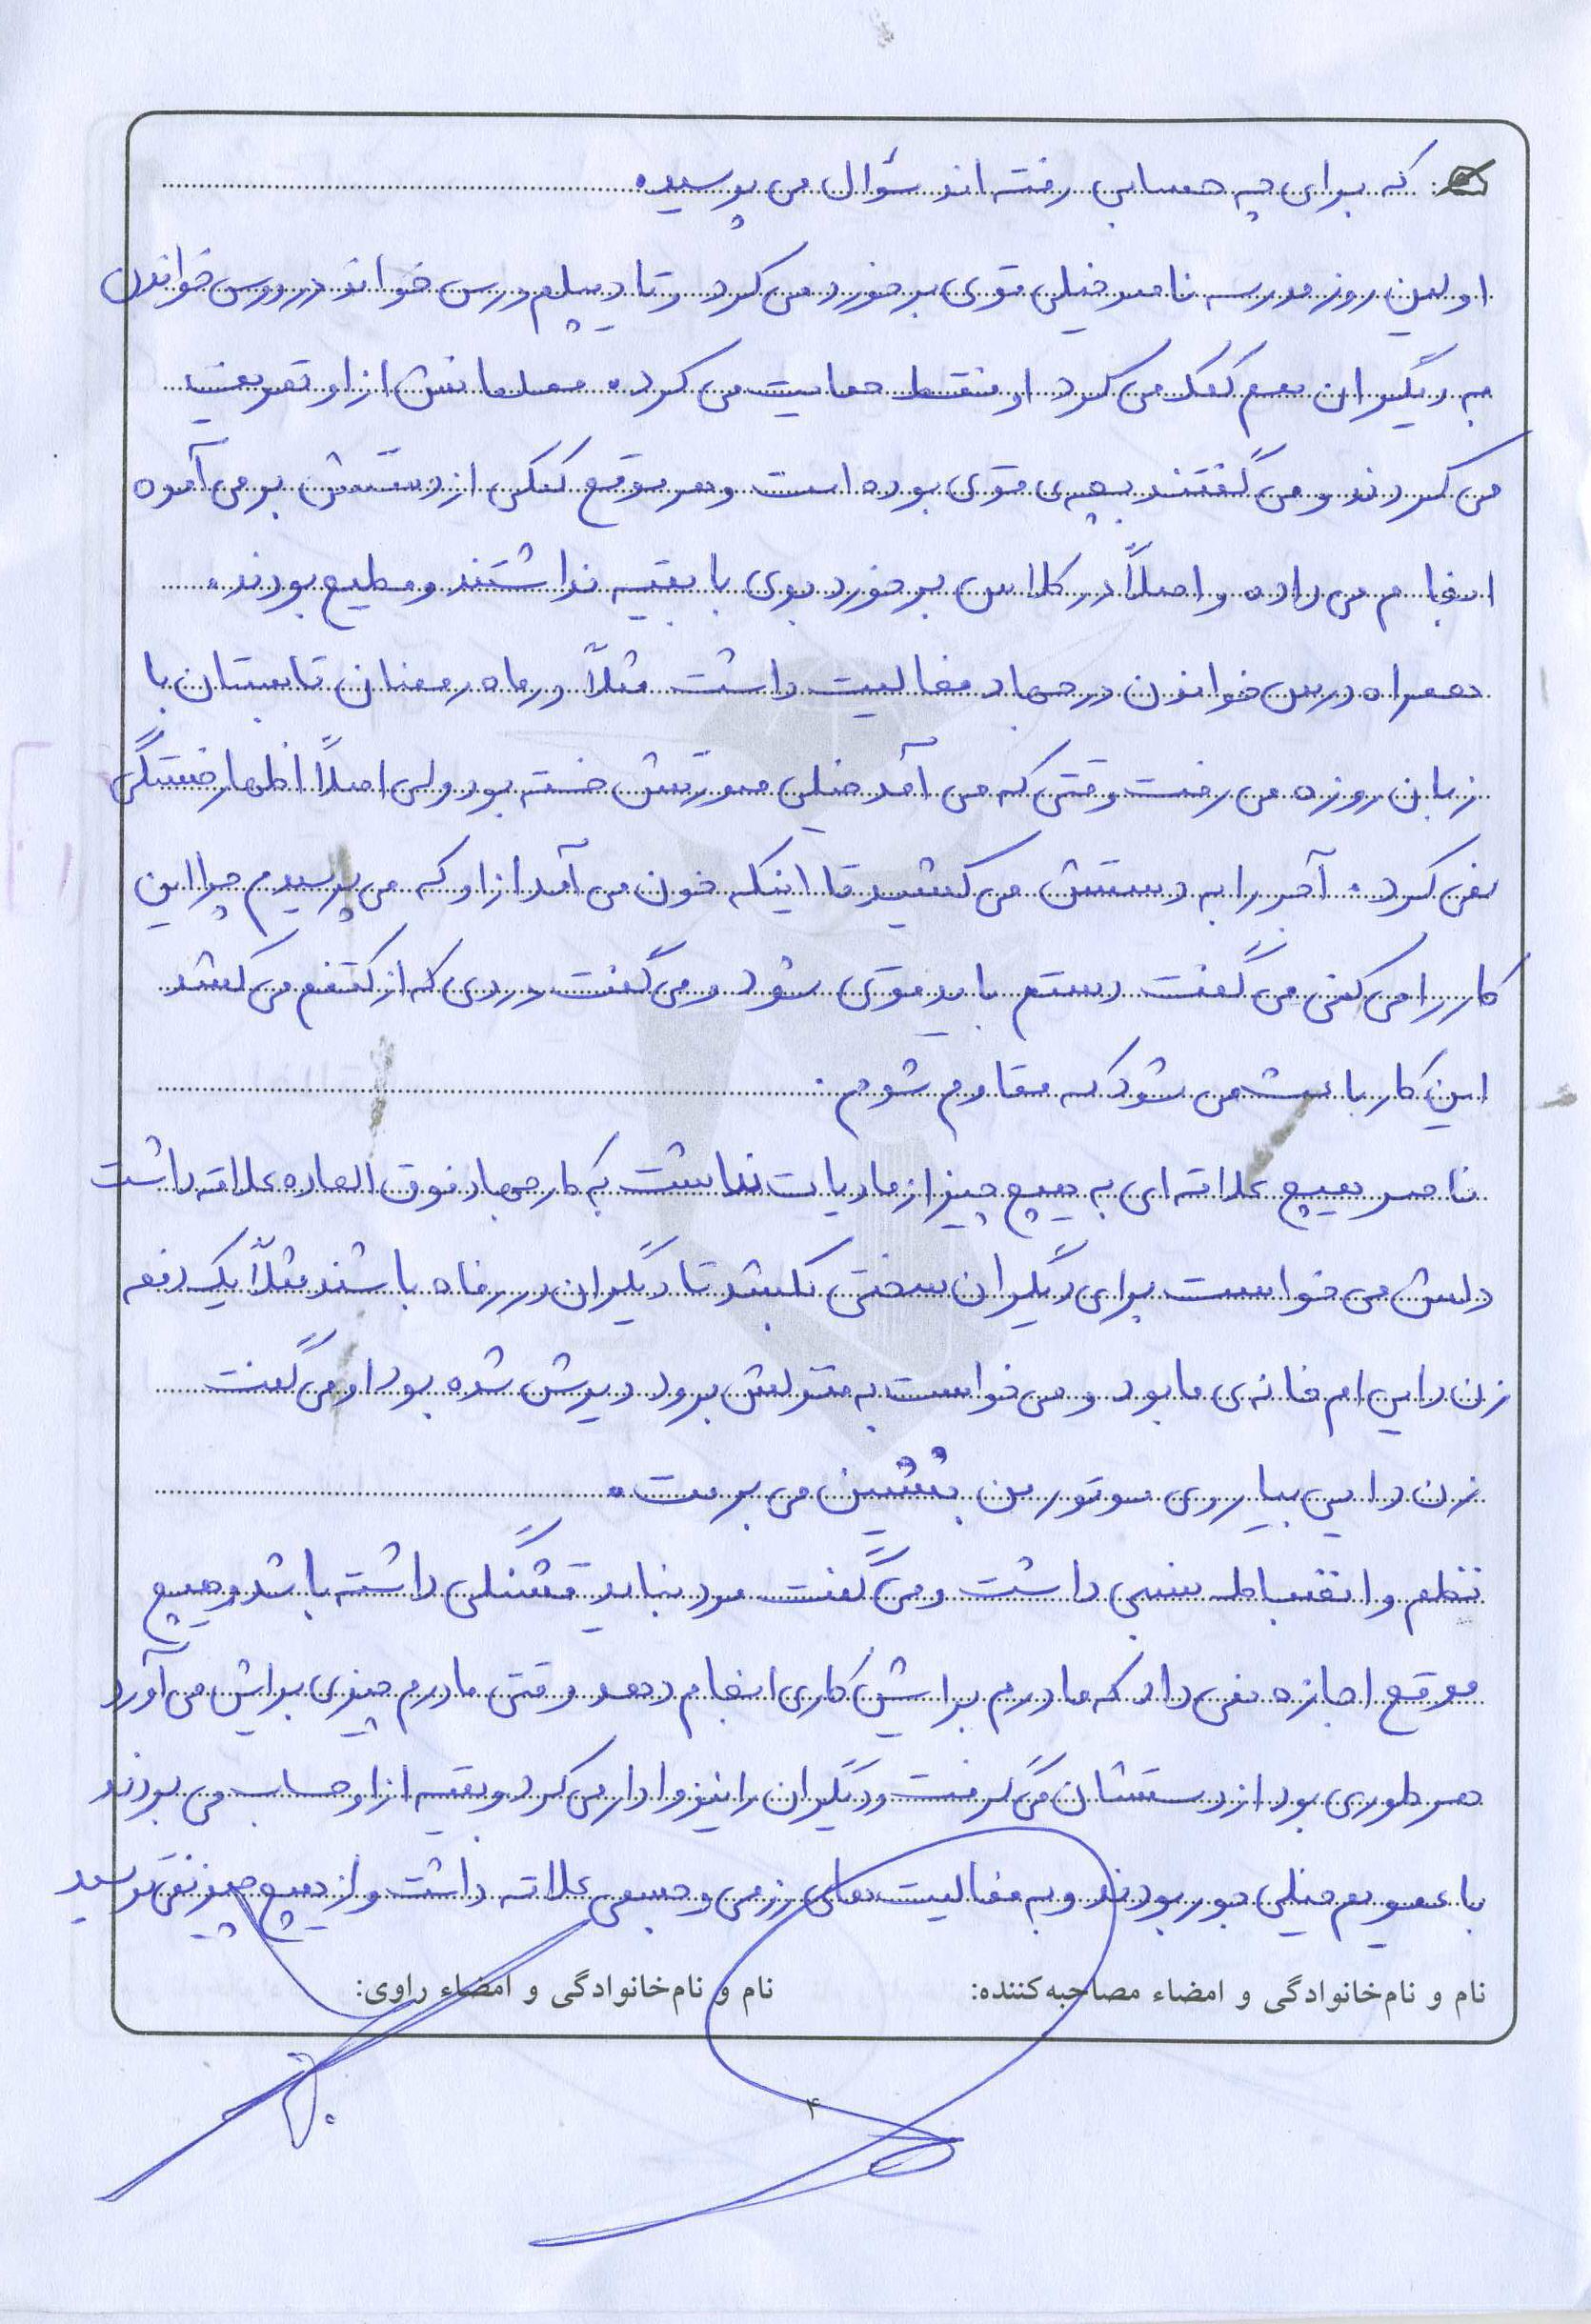 که برای چه حسابی رفته اند سؤال می پرسید.
اولین روز مدرسه ناصر خیلی قوی برخورد می کرد و تا دیپلم درس خواند در درس خواندن
به دیگران هم کمک می کرد او فقط حمایت می کرده معلمانش از او تعریف
می کردند و می گفتند بچه ی قوی بوده است و هر موقع کمکی از دستش بر می آمده
انجام می داده و اصلاً در کلاس برخورد بدی با بقیه نداشتند و مطیع بودند.
همراه درس خواندن در جهاد فعالیت داشت مثلاً در ماه رمضان تابستان با
زبان روزه می رفت وقتی که می آمد خیلی صورتش خسته بود ولی اصلاً اظهار خستگی
نمی کرد. آجر را به دستش می کشید تا اینکه خون می آمد از او که می پرسیدم چرا این
کار را می کنی می گفت دستم باید قوی شود و می گفت دردی که از کتفم می کشد
این کار باعث می شود که مقاوم شوم.
ناصر هیچ علاقه ای به هیچ چیز از مادیات نداشت به کار جهاد فوق العاده علاقه داشت
دلش می خواست برای دیگران سختی بکشد تا دیگران در رفاه باشند مثلاً یک دفعه
زن دایی ام خانه ی ما بود و می خواست به منزلش برود دیرش شده بود او می گفت
زن دایی بیا روی موتور من بنشین می برمت.
نظم و انضباط نسبی داشت و می گفت مرد نباید قشنگی داشته باشد و هیچ
موقع اجازه نمی داد که مادرم برایش کاری انجام دهد وقتی مادرم چیزی برایش می آورد
هر طوری بود از دستشان می گرفت و دیگران را نیز وادار می کرد و بقیه از او حساب می بردند
با عمویم خیلی جور بودند و به فعالیت های رزمی و جسمی علاقه داشت و از هیچ چیز نمی ترسید
نام و نام‌خانوادگی و امضاء مصاحبه‌کننده: نام و نام‌خانوادگی و امضاء راوی:
۴